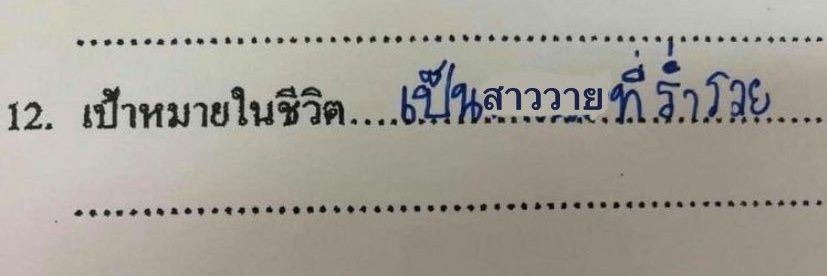 12. เป้าหมายในชีวิต....เป็นสาววายที่ร่ำรวย